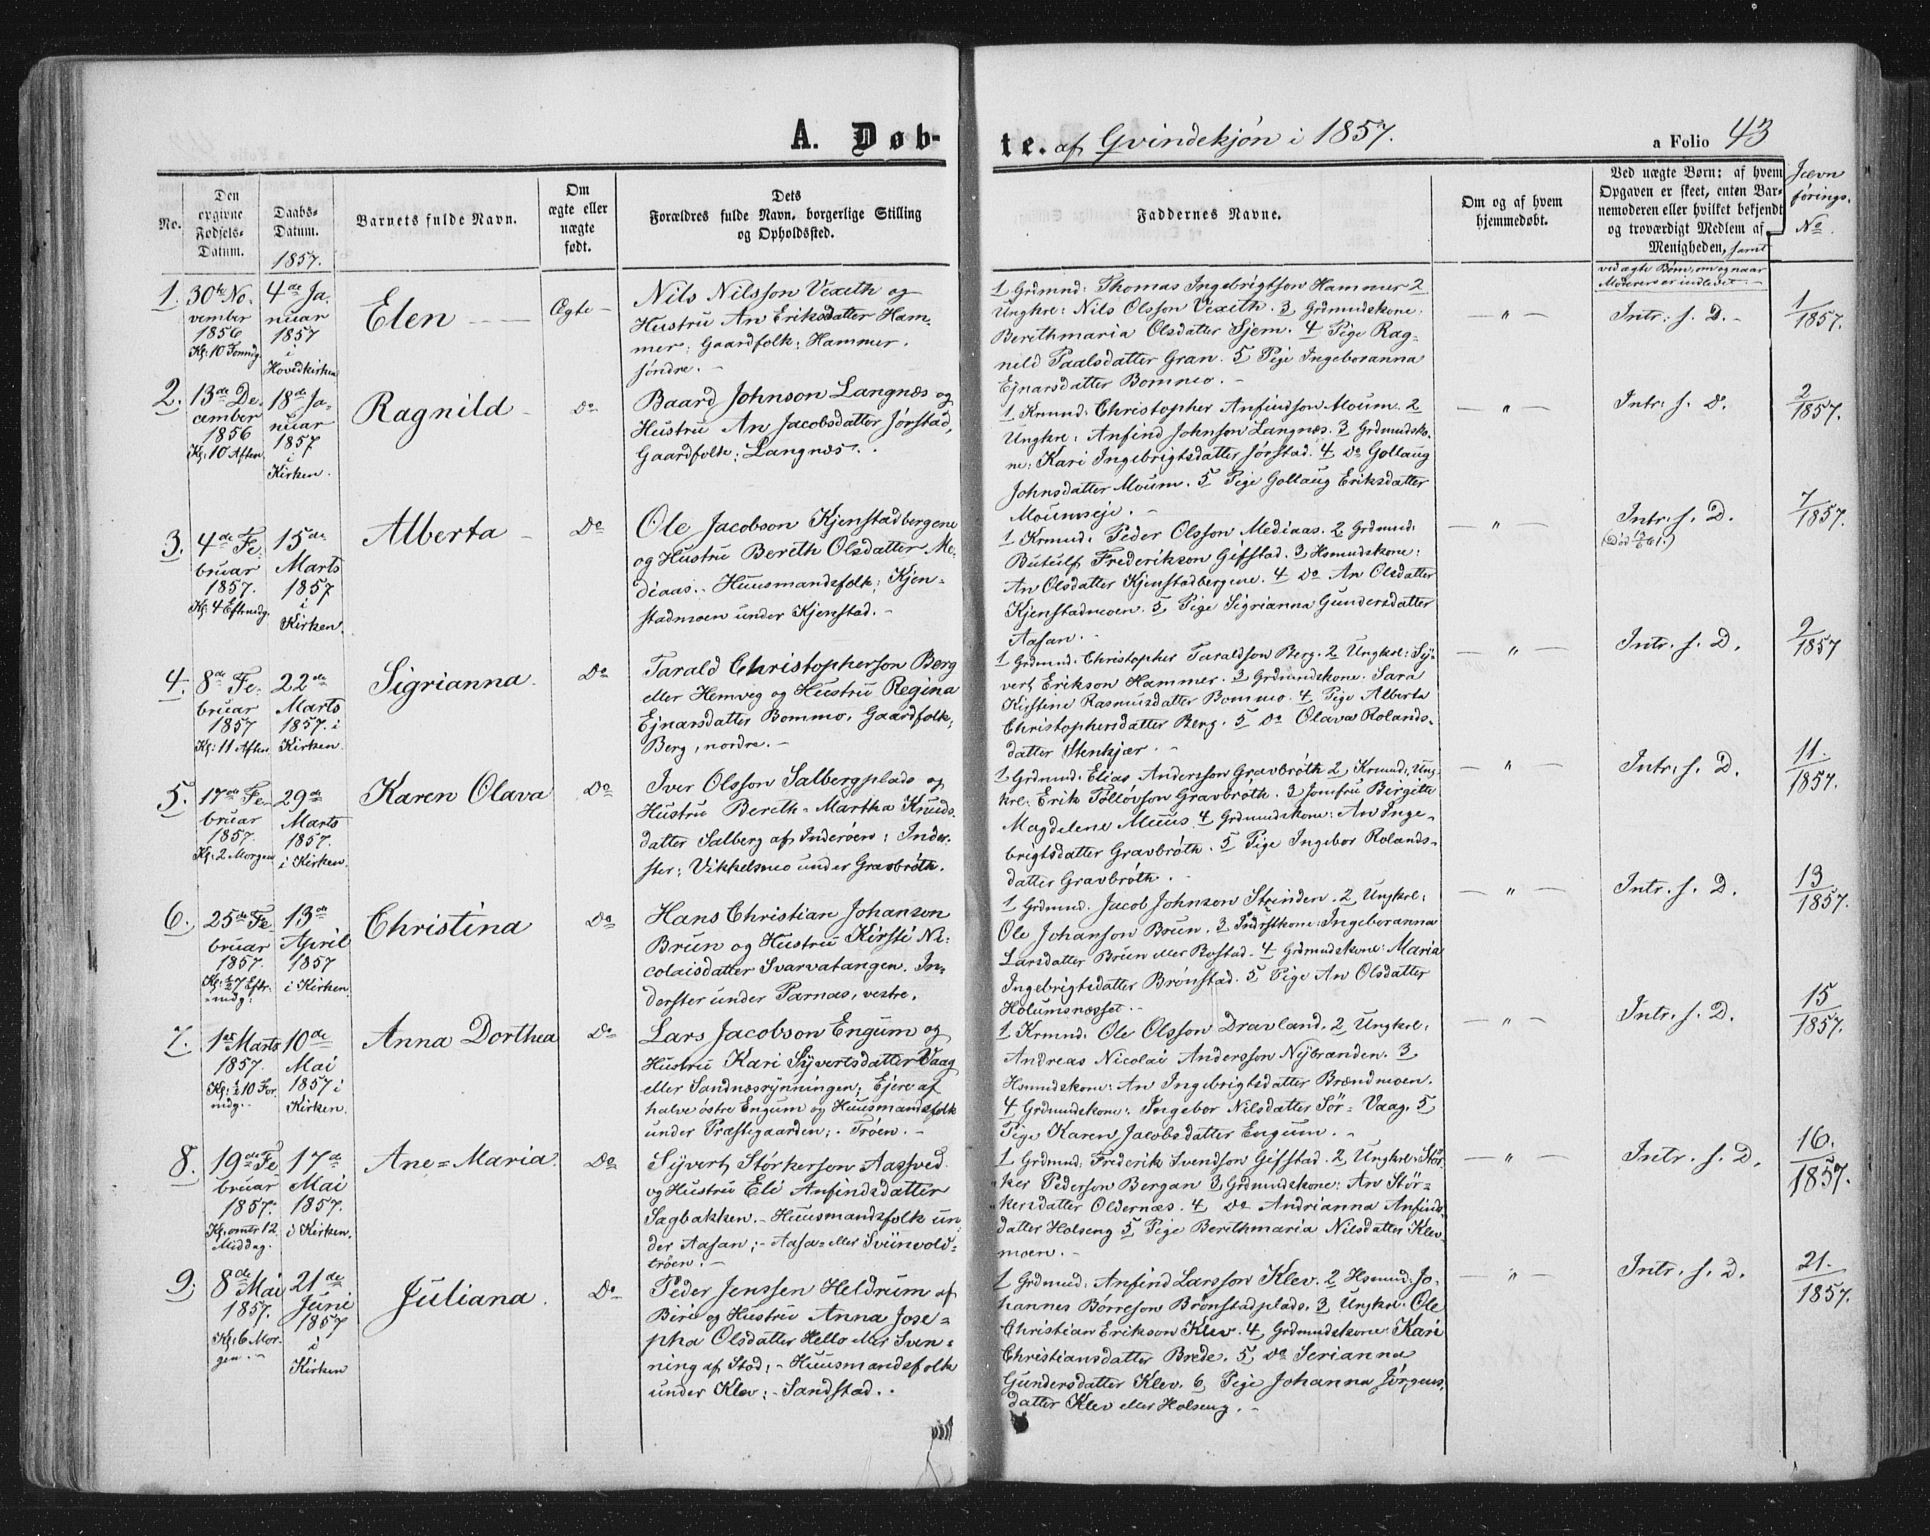 A. Døb-
te. af Qvindekjøn i 1857.
a Folio 43
No.
Den
opgivne
Fødsels-
Datum.
Daabs-
Datum.
1857.
Barnets fulde Navn.
Om
ægte eller
uægte
født.
Dets
Forældres fulde Navn, borgerlige Stilling
og Opholdssted.
Faddernes Navne.
Om og af hvem
hjemmedøbt.
Ved uægte Børn: af hvem
Opgaven er skeet, enten Bar-
nemoderen eller hvilket bekjendt
og troværdigt Medlem af
Menigheden, samt
ved ægte Børn, om og naar
Moderen er indledet.
Jævn
førings-
No.
1.
30te No-
vember
1856
Kl: 10 Formdg.
4de Ja-
nuar
1857
i
Hovedkirken
Elen
Ægte
Nils Nilsson Vexeth og
Hustru An Eriksdatter Ham-
mer: Gaardfolk: Hammer,
søndre.
1 Grdmnd: Thomas Ingebrigtson Hammer 2
Ungkre: Nils Olsson Vexeth. 3 Grdmndskone:
Berithmaria Olsdatter Sjem. 4 Pige Rag-
nild Paalsdatter Gran. 5 Pige Ingeboranna
Ejnarsdatter Bommo.
— " —
Intr: s. D.
1/1857.
2.
13de De-
cember
1856
Kl: 10 Aften
18de Ja-
nuar
1857
i
Kirken.
Ragnild
Do
Baard Johnson Langnæs og
Hustru An Jacobsdatter Jørstad,
Gaardfolk: Langnæs.
1 Krmnd: Christopher Anfindson Moum. 2
Ungkre: Anfind Johnson Langnæs. 3 Grdmndsko-
ne: Kari Ingebrigtsdatter Jørstad. 4 Do Gollaug
Johnsdatter Moum. 5 Pige Gollaug Eriksdatter
Moumseje.
— " —
Intr: s. D.
2/1857.
3.
4de Fe-
bruar
1857.
Kl: 4 Eftmdg.
15de
Marts
1857
i
Kirken.
Alberta
Do
Ole Jacobson Kjenstadbergene
og Hustru Bereth Olsdatter Me-
diaas. Huusmandsfolk: Kjen-
stadmoen under Kjenstad.
1 Krmnd: Peder Olsson Mediaas. 2 Grdmnd:
Butulf Frederikson Gifstad. 3 Hsmndskone:
An Olsdatter Kjenstadbergene. 4 Do An Olsdatter
Kjenstadmoen. 5 Pige Sigrianna Gundersdatter
Aasan.
— " —
Intr: s. D.
7/1857.
4.
8de Fe-
bruar
1857
Kl: 11 Aften
22de
Marts
1857. i
Kirken.
Sigrianna.
Do
Tarald Christopherson Berg
eller Hemveg og Hustru Regina
Ejnarsdatter Bommo. Gaardfolk:
Berg, nordre.
1 Grdmnd: Christopher Taraldson Berg. 2 Ungkre: Sy-
vert Erikson Hammer. 3 Grdmndskone: Sara
Kirstine Rasmusdatter Bommo. 4 Pige Alberta
Christophersdatter Berg. 5 Do Olava Rolands-
datter Stenkjær.
— " —
Intr: s. D.
9/1857
5.
17de Fe-
bruar
1857.
Kl: 2 Morgen
29de
Marts
1857.
i Kirken.
Karen Olava
Do
Iver Olsson Salbergplads og
Hustru Bereth-Martha Knuds-
datter Salberg af Inderøen: Inder-
ster: Vikkelsmo under Gravbrøth.
1 Grdmnd: Elias Andersson Gravbrøth 2 Krmnd: Ung-
kre: Erik Tølløvson Gravbrøth. 3 Jomfru Birgitte
Magdelene Muus 4 Grdmndskone: An Inge-
brigtsdatter Gravbrøth. 5 Pige Ingebor Rolands-
datter Gravbrøth.
— " —
Intr: s. D.
11./1857.
6.
25de Fe-
bruar
1857.
Kl: 1/2 7 Eftr-
mdg:
13de
April
1857
i Kirken.
Christina
Do
Hans Christian Johanson
Brun og Hustru Kirsti Ni-
colaisdatter Svarvatangen. In-
derster under Parnas, vestre.
1 Grdmnd. Jacob Johnson Strinden. 2 Ungkre:
Ole Johanson Brun. 3 Indrstkone: Ingeboranna
Larsdatter Brun eller Bostad. 4 Grdmndskone: Maria
Ingebrigtsdatter Brønstad. 5 Pige An Olsdatter
Holumsnæsset.
— " —
Intr. s. D.
13/1857.
7.
1ste Marts
1857.
Kl: 1/2 10 For-
mdg.
10de
Mai
1857 i
Kirken.
Anna Dorthea
Do
Lars Jacobson Engum og
Hustru Kari Syvertsdatter Vaag
eller Sandnæsrynningen: Ejere af
halve østre Engum og Huusmandsfolk
under Præstegaarden: Trøen.
1 Krmnd: Ole Olsson Dravland. 2 Ungkre:
Andreas Nicolai Andersson Nybranden. 3
Hsmndskone: An Ingebrigtsdatter Brændmoen.
4 Grdmndskone: Ingebor Nilsdatter Sør-Vaag. 5
Pige Karen Jacobsdatter Engum.
— " —
Intr: s. D.
15/1857.
8.
19de Fe
bruar
1857.
Kl: omtr 12
Middag.
17de
Mai
1857.
i Kirken.
Ane-Maria.
Do
Syvert Størkerson Aasved
og Hustru Eli Anfindsdatter
Sagbakken. Huusmandsfolk un-
der Aasan: Aasa- eller Sviinvold-
trøen.
1 Grdmnd: Frederik Svendson Gifstad. 2 Ungkre: Stør-
ker Pederson Bergan 3 Grdmndskone: An Stør-
kersdatter Oldernæs. 4 Do Andrianna Anfinds-
datter Holseng 5 Pige Berithmaria Nilsdatter Klev
moen.
— " —
Intr. s. D.
16./1857.
9.
8de Mai
1857.
Kl: 6 Mor-
gen.
21de
Juni
1857
i
Kirken
Juliana.
Do
Peder Jenssen Heldrum af
Biri og Hustru Anna Jose-
pha Olsdatter Hello eller Sven-
ning af Stod: Huusmandsfolk
under Klev: Sandstad.
1 Grdmnd: Anfind Larsson Klev. 2 Hsmnd: Jo-
hannes Børreson Brønstadplads. 3 Ungkre: Ole
Christian Erikson Klev. 4 Grdmndskone: Kari
Christiansdatter Brede. 5 Do Serianna
Gundersdatter Klev. 6 Pige Johanna Jørgens-
datter Klev eller Holseng.
— " —
Intr. s. D.
21./1857.